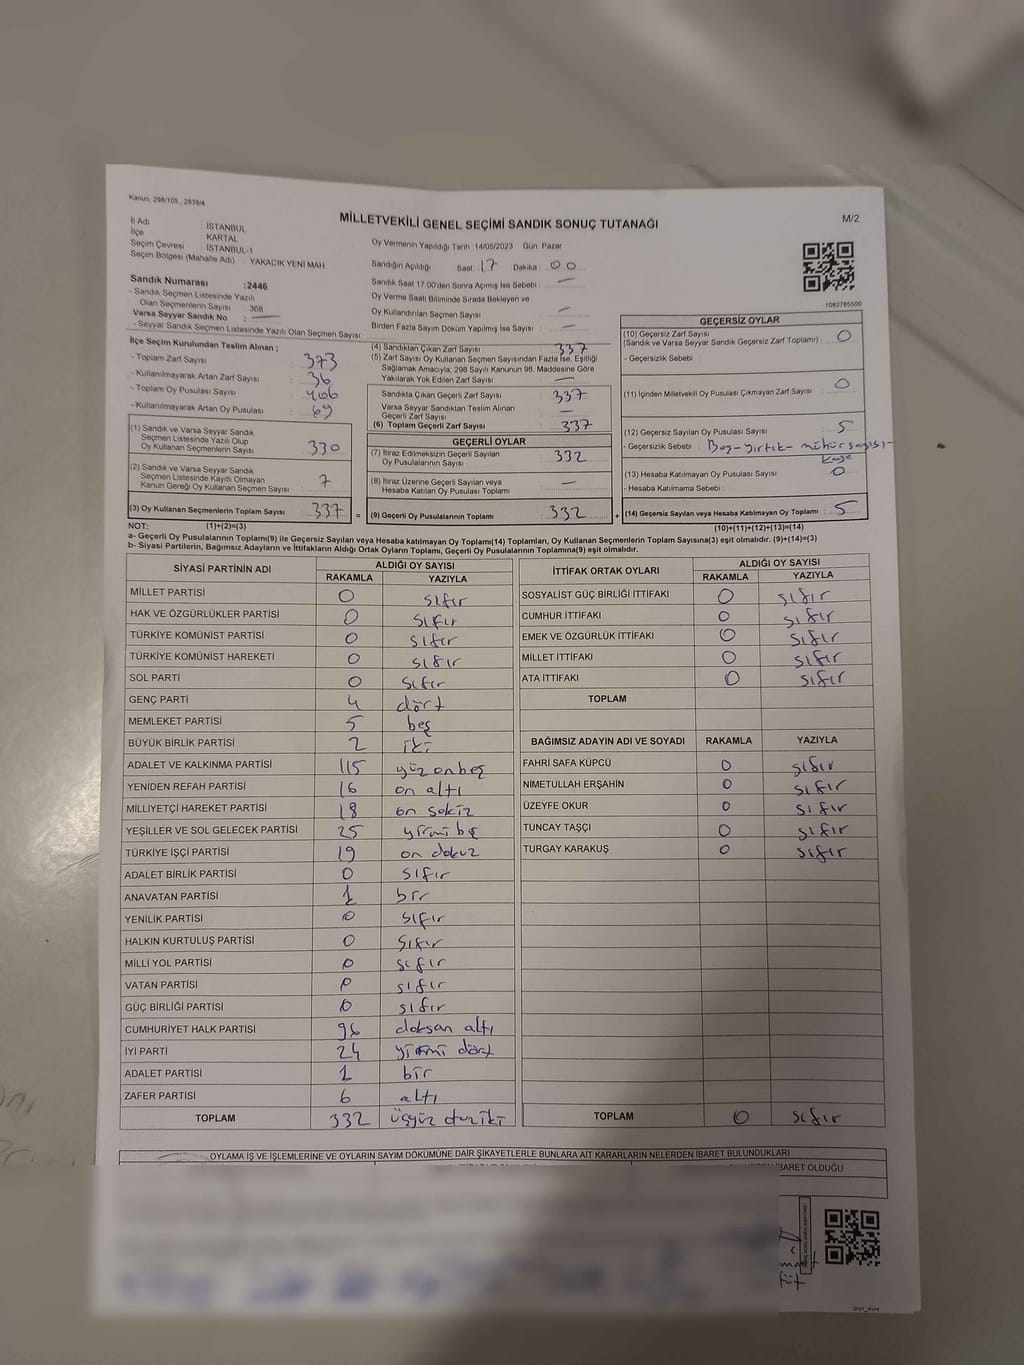 Kanun, 298/105 , 2839/4
MİLLETVEKİLİ GENEL SEÇİMİ SANDIK SONUÇ TUTANAĞI
M/2
İl Adı : İSTANBUL
İlçe : KARTAL
Seçim Çevresi : İSTANBUL-1
Seçim Bölgesi (Mahalle Adı) : YAKACIK YENİ MAH
Sandık Numarası :2446
- Sandık Seçmen Listesinde Yazılı
Olan Seçmenlerin Sayısı : 368
Varsa Seyyar Sandık No :
- Seyyar Sandık Seçmen Listesinde Yazılı Olan Seçmen Sayısı:
Oy Vermenin Yapıldığı Tarih :14/05/2023 Gün: Pazar
Sandığın Açıldığı Saat: 17 Dakika: 00
Sandık Saat 17.00'den Sonra Açımış İse Sebebi : —
Oy Verme Saati Bitiminde Sırada Bekleyen ve
Oy Kullandırılan Seçmen Sayısı : —
Birden Fazla Sayım Döküm Yapılmış İse Sayısı : —
1083785500
İlçe Seçim Kurulundan Teslim Alınan ;
- Toplam Zarf Sayısı : 373
- Kullanılmayarak Artan Zarf Sayısı : 36
- Toplam Oy Pusulası Sayısı : 406
- Kullanılmayarak Artan Oy Pusulası : 69
(1) Sandık ve Varsa Seyyar Sandık
Seçmen Listesinde Yazılı Olup
Oy Kullanan Seçmenlerin Sayısı : 330
(2) Sandık ve Varsa Seyyar Sandık
Seçmen Listesinde Kayıtlı Olmayan
Kanun Gereği Oy Kullanan Seçmen Sayısı : 7
(3) Oy Kullanan Seçmenlerin Toplam Sayısı : 337 =
(4) Sandıktan Çıkan Zarf Sayısı : 337
(5) Zarf Sayısı Oy Kullanan Seçmen Sayısından Fazla İse, Eşitliği
Sağlamak Amacıyla, 298 Sayılı Kanunun 98. Maddesine Göre
Yakılarak Yok Edilen Zarf Sayısı : —
Sandıkta Çıkan Geçerli Zarf Sayısı : 337
Varsa Seyyar Sandıktan Teslim Alınan
Geçerli Zarf Sayısı : —
(6) Toplam Geçerli Zarf Sayısı : 337
GEÇERLİ OYLAR
(7) İtiraz Edilmeksizin Geçerli Sayılan
Oy Pusulalarının Sayısı : 332
(8) İtiraz Üzerine Geçerli Sayılan veya
Hesaba Katılan Oy Pusulası Toplamı : —
(9) Geçerli Oy Pusulalarının Toplamı : 332 +
GEÇERSİZ OYLAR
(10) Geçersiz Zarf Sayısı
(Sandık ve Varsa Seyyar Sandık Geçersiz Zarf Toplamı) : 0
- Geçersizlik Sebebi :
(11) İçinden Milletvekili Oy Pusulası Çıkmayan Zarf Sayısı : 0
(12) Geçersiz Sayılan Oy Pusulası Sayısı : 5
- Geçersizlik Sebebi : Boş-yırtık-mühür sayısı-
(13) Hesaba Katılmayan Oy Pusulası Sayısı : 0
- Hesaba Katılmama Sebebi :
(14) Geçersiz Sayılan veya Hesaba Katılmayan Oy Toplamı : 5
NOT: (1)+(2)=(3)
(10)+(11)+(12)+(13)=(14)
a- Geçerli Oy Pusulalarının Toplamı(9) ile Geçersiz Sayılan veya Hesaba Katılmayan Oy Toplamı(14) Toplamları, Oy Kullanan Seçmenlerin Toplam Sayısına(3) eşit olmalıdır. (9)+(14)=(3)
b- Siyasi Partilerin, Bağımsız Adayların ve İttifakların Aldığı Ortak Oyların Toplamı, Geçerli Oy Pusulalarının Toplamına(9) eşit olmalıdır.
SİYASİ PARTİNİN ADI ALDIĞI OY SAYISI
RAKAMLA YAZIYLA
MİLLET PARTİSİ 0 sıfır
HAK VE ÖZGÜRLÜKLER PARTİSİ 0 sıfır
TÜRKİYE KOMÜNİST PARTİSİ 0 sıfır
TÜRKİYE KOMÜNİST HAREKETİ 0 sıfır
SOL PARTİ 0 sıfır
GENÇ PARTİ 4 dört
MEMLEKET PARTİSİ 5 beş
BÜYÜK BİRLİK PARTİSİ 2 iki
ADALET VE KALKINMA PARTİSİ 115 yüz onbeş
YENİDEN REFAH PARTİSİ 16 on altı
MİLLİYETÇİ HAREKET PARTİSİ 18 on sekiz
YEŞİLLER VE SOL GELECEK PARTİSİ 25 yirmi beş
TÜRKİYE İŞÇİ PARTİSİ 19 on dokuz
ADALET BİRLİK PARTİSİ 0 sıfır
ANAVATAN PARTİSİ 1 bir
YENİLİK PARTİSİ 0 sıfır
HALKIN KURTULUŞ PARTİSİ 0 sıfır
MİLLİ YOL PARTİSİ 0 sıfır
VATAN PARTİSİ 0 sıfır
GÜÇ BİRLİĞİ PARTİSİ 0 sıfır
CUMHURİYET HALK PARTİSİ 96 doksan altı
İYİ PARTİ 24 yirmi dört
ADALET PARTİSİ 1 bir
ZAFER PARTİSİ 6 altı
TOPLAM 332 üçyüz otuziki
İTTİFAK ORTAK OYLARI ALDIĞI OY SAYISI
RAKAMLA YAZIYLA
SOSYALİST GÜÇ BİRLİĞİ İTTİFAKI 0 sıfır
CUMHUR İTTİFAKI 0 sıfır
EMEK VE ÖZGÜRLÜK İTTİFAKI 0 sıfır
MİLLET İTTİFAKI 0 sıfır
ATA İTTİFAKI 0 sıfır
TOPLAM
BAĞIMSIZ ADAYIN ADI VE SOYADI RAKAMLA YAZIYLA
FAHRİ SAFA KÜPCÜ 0 sıfır
NİMETULLAH ERŞAHİN 0 sıfır
ÜZEYFE OKUR 0 sıfır
TUNCAY TAŞÇI 0 sıfır
TURGAY KARAKUŞ 0 sıfır
TOPLAM 0 sıfır
OYLAMA İŞ VE İŞLEMLERİNE VE OYLARIN SAYIM DÖKÜMÜNE DAİR ŞİKAYETLERLE BUNLARA AİT KARARLARIN NELERDEN İBARET BULUNDUKLARI
İBARET OLDUĞU